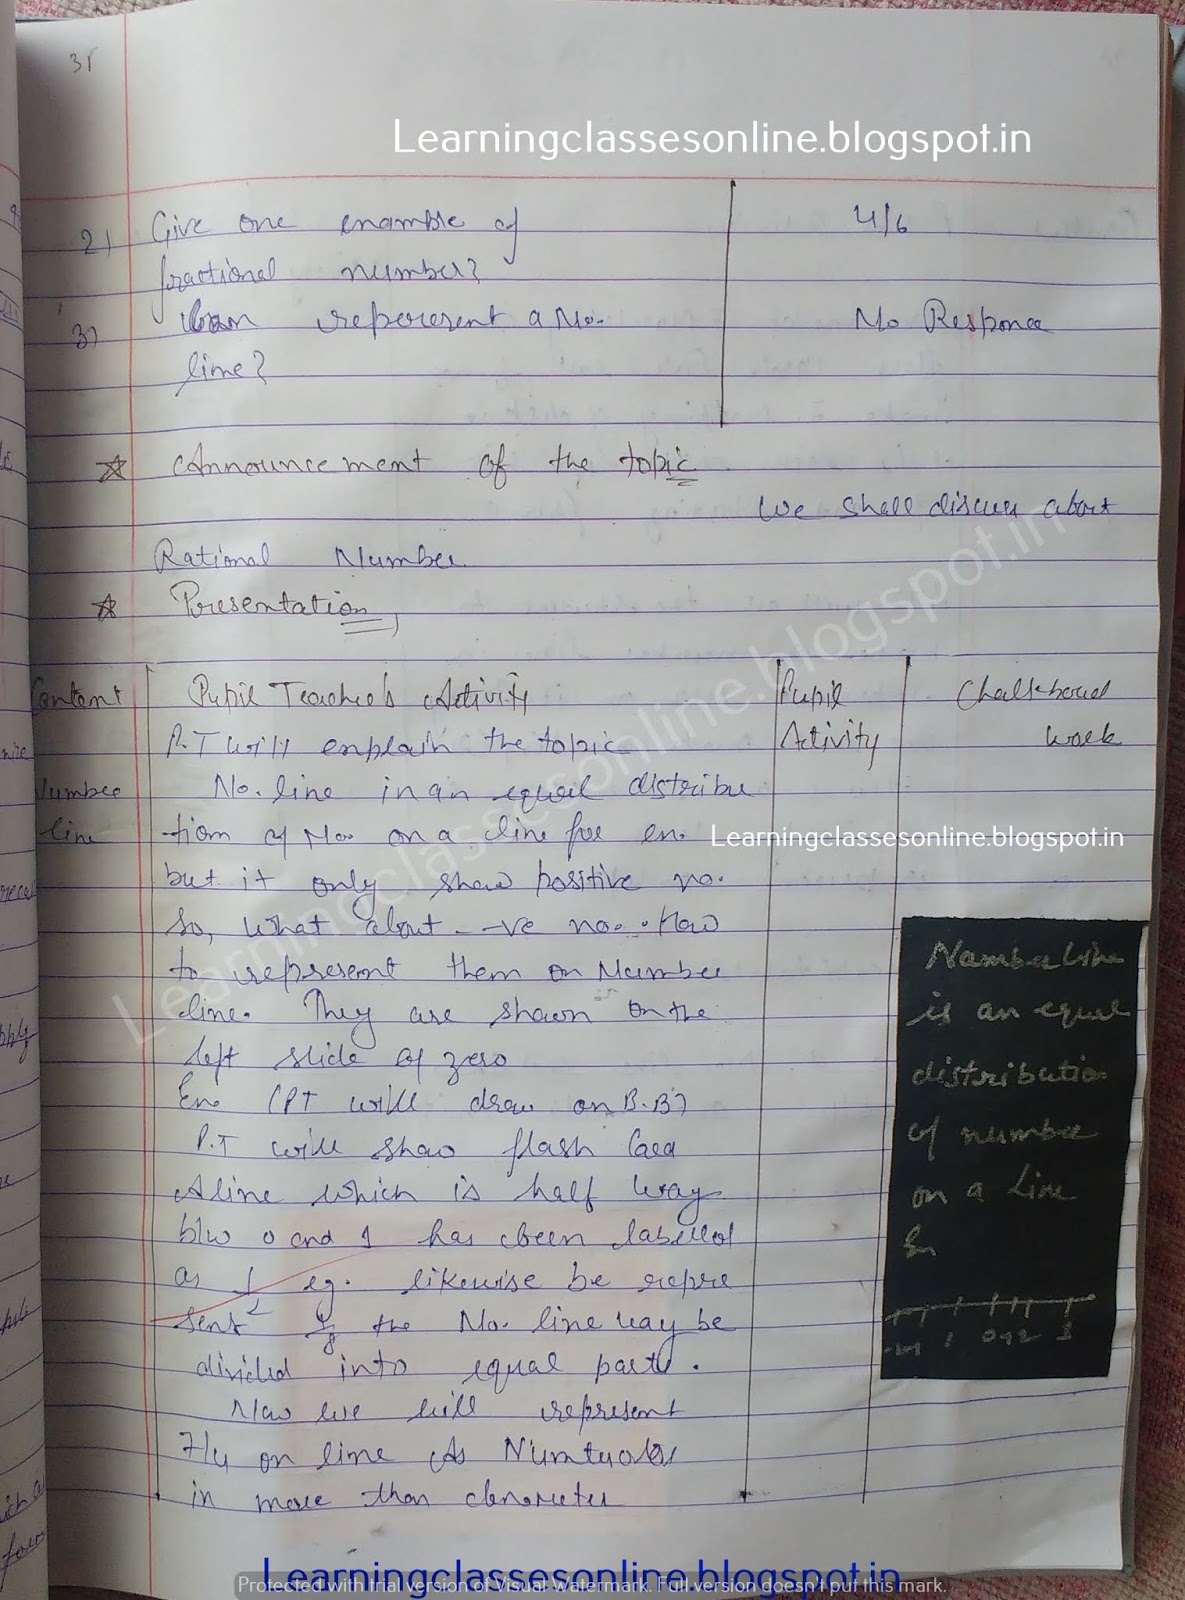 31
Learningclassesonline.blogspot.in
2) Give one enamble of 4/6
fractional number?
3) represent a No. No Responce
line?
Announcement of the topic
We shall discuss about
Rational Number
Presentation,
Content Pupil Teacher's Activity Pupil Chalkboard
P.T will enplain the topic Activity work
Number No. line in an equal distribu
line tion of No. on a line for en.
Learningclassesonline.blogspot.in
but it only show positive no.
So, what about -ve no. How
to represent them on Number
line. They are shown on the
left slide of zero
En. (PT will draw on B.B)
P.T will show flash Card
A line which is half way
b/w 0 and 1 has been labelled
as 1/2 eg. likewise be repre
sent the No. line may be
divided into equal parts.
Now we will represent
7/4 on line As
in more than
Number line
is an equal
distribution
of number
on a line
En
Learningclassesonline.blogspot.in
Learningclassesonline.blogspot.in
Protected with trial version of Visual Watermark. Full version doesn't put this mark.